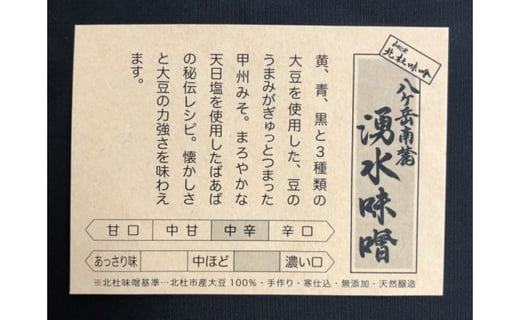 みんなの
北杜味噌
八ヶ岳南麓
湧水味噌
黄、青、黒と3種類の
大豆を使用した、豆の
うまみがぎゅっとつまった
甲州みそ。まろやかな
天日塩を使用したばあば
の秘伝レシピ。懐かしさ
と大豆の力強さを味わえ
ます。
甘口 中甘 中辛 辛口
あっさり味 中ほど 濃い口
※北杜味噌基準…北杜市産大豆100%・手作り・寒仕込・無添加・天然醸造